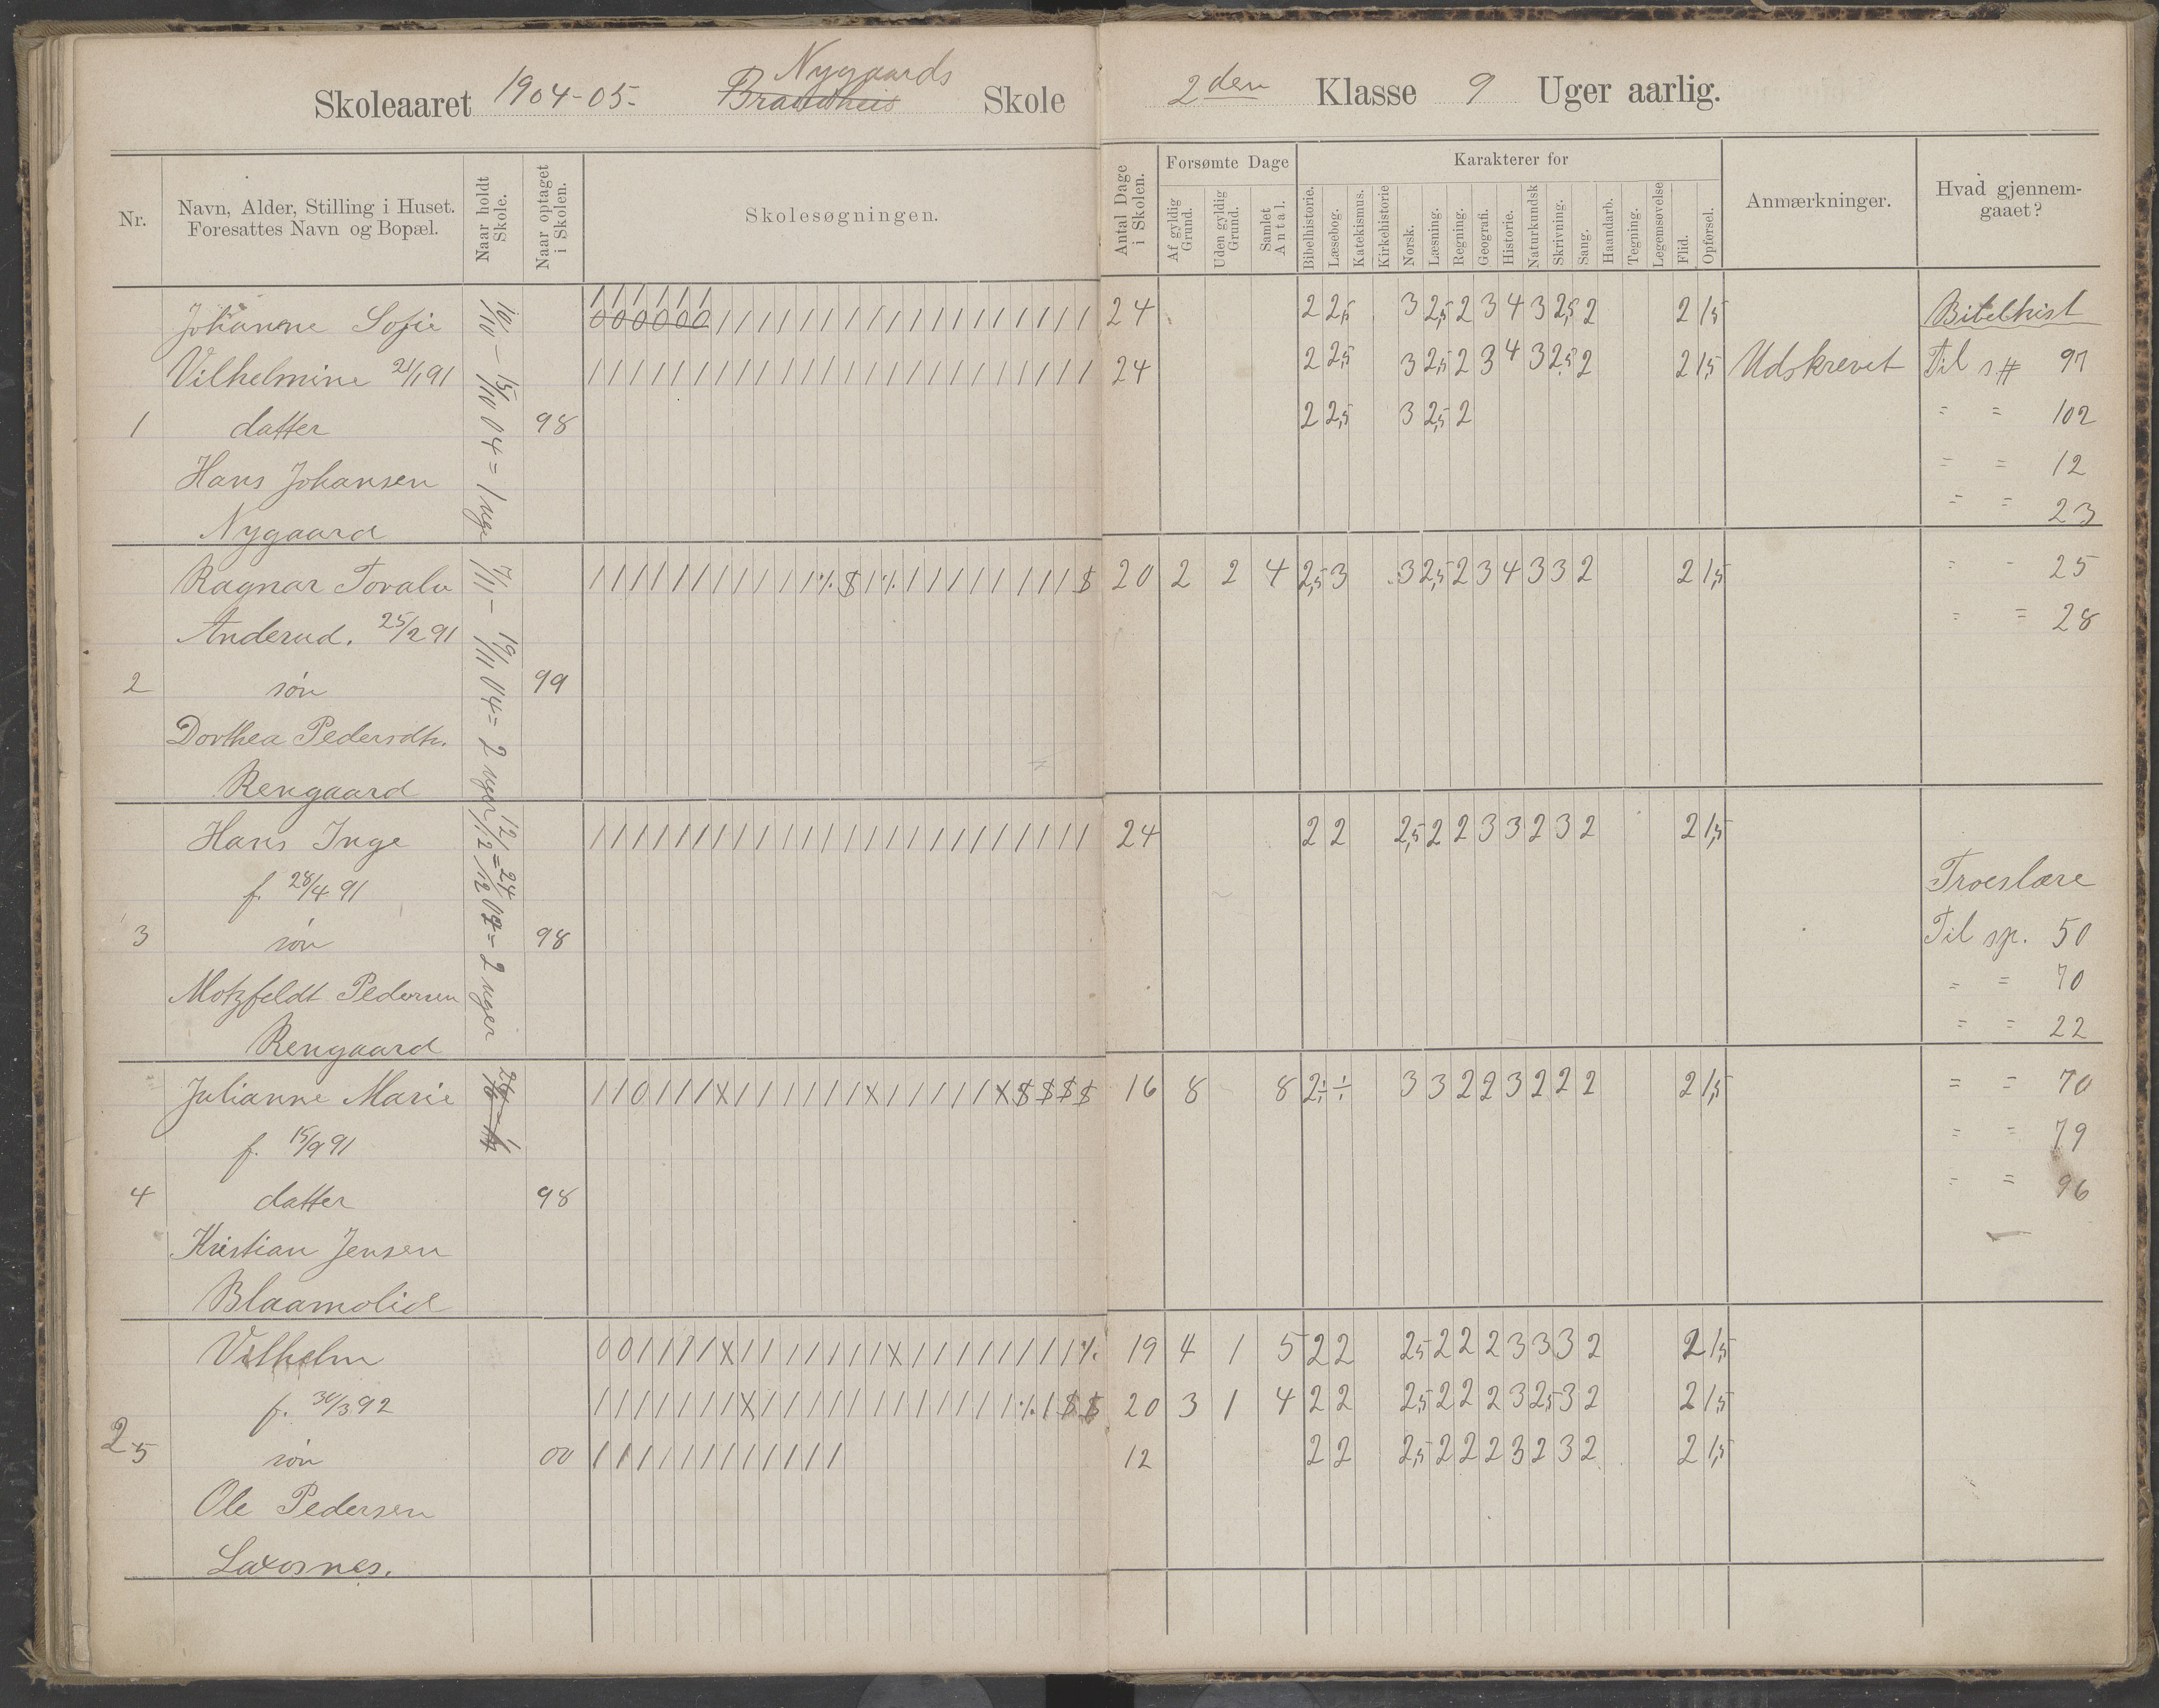 Skoleaaret 1904-05. Brandheis Nygaards Skole
2den Klasse 9 Uger aarlig.
Nr.
Navn, Alder, Stilling i Huset.
Foresattes Navn og Bopæl.
Naar holdt Skole.
Naar optaget i Skolen.
Skolesøgningen.
Antal Dage i Skolen.
Forsømte Dage
Af gyldig Grund.
Uden gyldig Grund.
Samlet Antal.
Karakterer for
Bibelhistorie.
Læsebog.
Katekismus.
Kirkehistorie
Norsk.
Læsning.
Regning.
Geografi.
Historie.
Naturkundsk
Skrivning.
Sang.
Haandarb.
Tegning.
Legemsøvelse
Flid.
Opførsel.
Anmærkninger.
Hvad gjennem-
gaaet?
Johanne Sofie 24 2 2,5 3 2,5 2 3 4 3 2,5 2 2 1,5
Vilhelmine 21/1 91 24 2 2,5 3 2,5 2 3 4 3 2,5 2 2 1,5 Udskrevet
1 datter 98 2 2,5 3 2,5 2
Hans Johansen
Nygaard
10/10 - 15/10 04 = 1 uge
Ragnar Tovalv 20 2 2 4 2,5 3 3 2,5 2 3 4 3 3 2 2 1,5
Anderud. 25/2 91
2 søn 99
Dorthea Pedersdtr.
Rengaard
7/11 - 19/11 04 = 2 uger
Hans Inge 24 2 2 2,5 2 2 3 3 2 3 2 2 1,5
f. 28/4 91
3 søn 98
Motzfeldt Pedersen
Rengaard
12/12 = 24/12 04 = 2 uger
Julianne Marie 16 8 8 2 ÷ ÷ 3 3 2 2 3 2 2 2 2 1,5
f. 15/9 91
4 datter 98
Kristian Jensen
Blaamolid
Vilhelm 19 4 1 5 2 2 2,5 2 2 2 3 3 3 2 2 1,5
f. 30/3 92 20 3 1 4 2 2 2,5 2 2 2 3 2,5 3 2 2 1,5
2 5 søn 00 12 2 2 2,5 2 2 2 3 2 3 2 2 1,5
Ole Pedersen
Laxosnes.
Bibelhist
Til s# 97
= = 102
= = 12
= = 23
= - 25
= = 28
Troeslære
Til sp. 50
= = 70
= = 22
= = 70
= = 79
= = 96